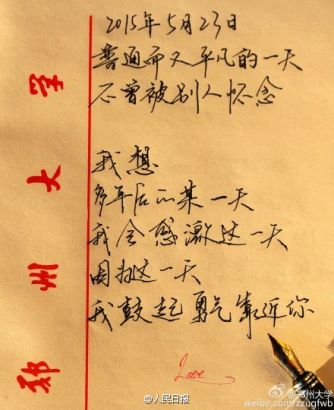 2015年5月23日
普通而又平凡的一天
不曾被别人怀念
我想
多年后的某一天
我会感激这一天
因为这一天
我鼓起勇气靠近你
Love
郑州大学
@人民日报
@郑州大学
weibo.com/zzugfwb